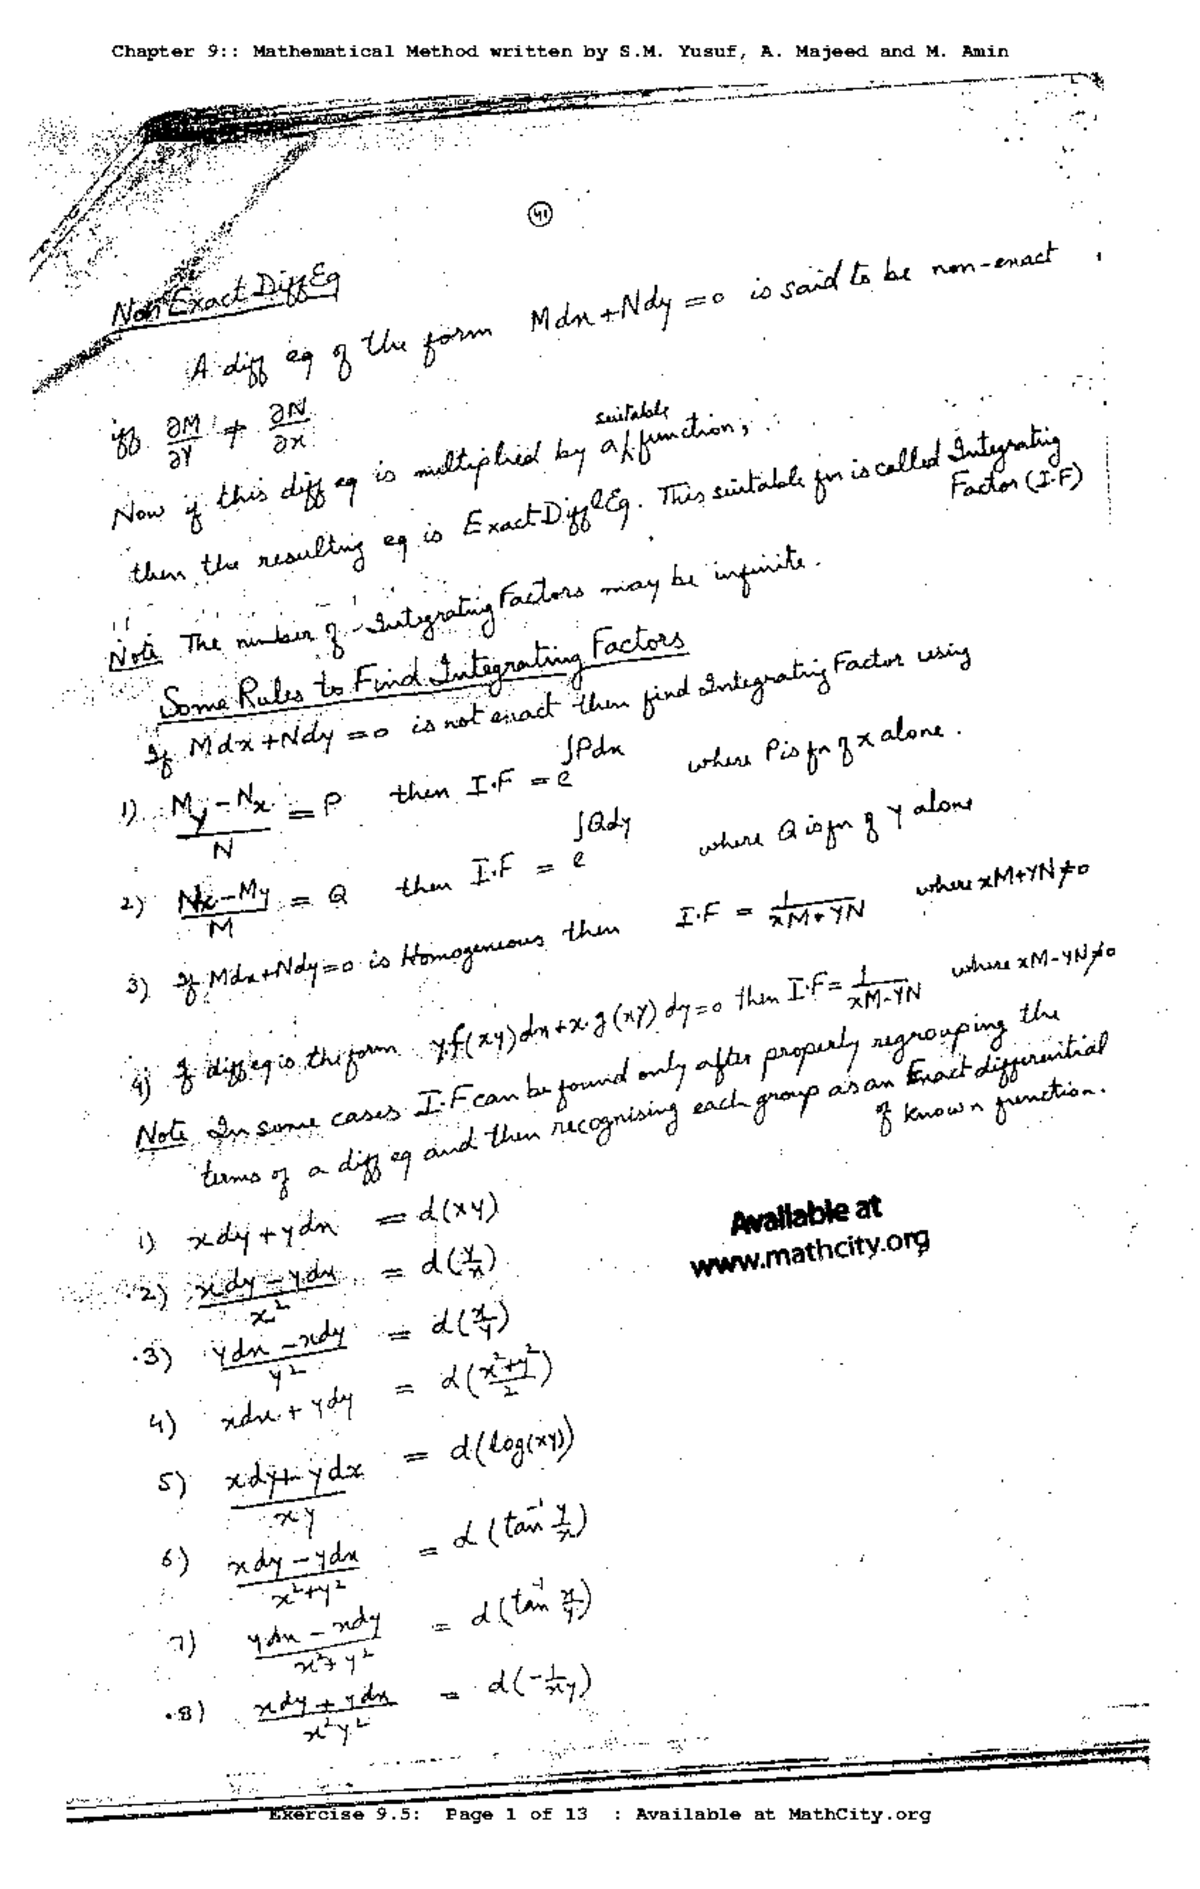 Chapter 9:: Mathematical Method written by S.M. Yusuf, A. Majeed and M. Amin
41
Non Exact Diff Eq
A diff eq of the form Mdx + Ndy = 0 is said to be non-exact
iff ∂M/∂y ≠ ∂N/∂x
Now if this diff eq is multiplied by a suitable function,
then the resulting eq is Exact Diffl Eq. This suitable fn is called Integrating
Factor (I.F)
Note The number of Integrating Factors may be infinite.
Some Rules to Find Integrating Factors
If Mdx + Ndy = 0 is not exact then find Integrating Factor using
1) (My - Nx)/N = P then I.F = e^∫Pdx where P is fn of x alone.
2) (Nx - My)/M = Q then I.F = e^∫Qdy where Q is fn of y alone
3) If Mdx + Ndy = 0 is Homogeneous then I.F = 1/(xM + yN) where xM + yN ≠ 0
4) If diff eq is the form y.f(xy)dx + x.g(xy)dy = 0 then I.F = 1/(xM - yN) where xM - yN ≠ 0
Note In some cases I.F can be found only after properly regrouping the
terms of a diff eq and then recognising each group as an Exact differential
of known function.
1) xdy + ydx = d(xy)
2) (xdy - ydx)/x² = d(y/x)
3) (ydx - xdy)/y² = d(x/y)
4) xdx + ydy = d((x² + y²)/2)
5) (xdy + ydx)/xy = d(log(xy))
6) (xdy - ydx)/(x² + y²) = d(tan⁻¹ y/x)
7) (ydx - xdy)/(x² + y²) = d(tan⁻¹ x/y)
8) (xdy + ydx)/x²y² = d(-1/xy)
Available at
www.mathcity.org
Exercise 9.5: Page 1 of 13 : Available at MathCity.org